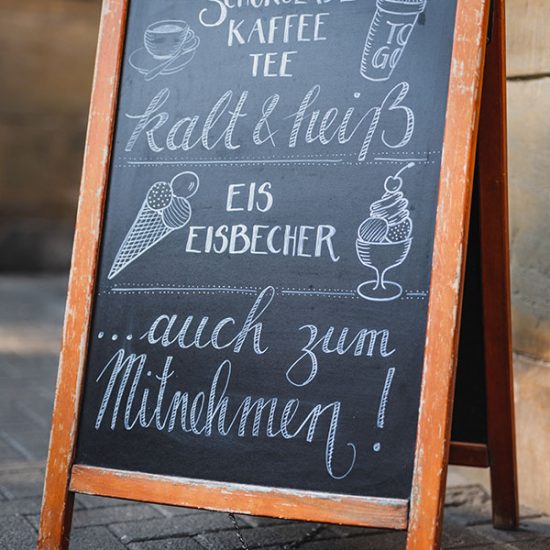 SCHOKOLADE
KAFFEE
TEE
TO
GO
kalt & heiß
EIS
EISBECHER
...auch zum
Mitnehmen!